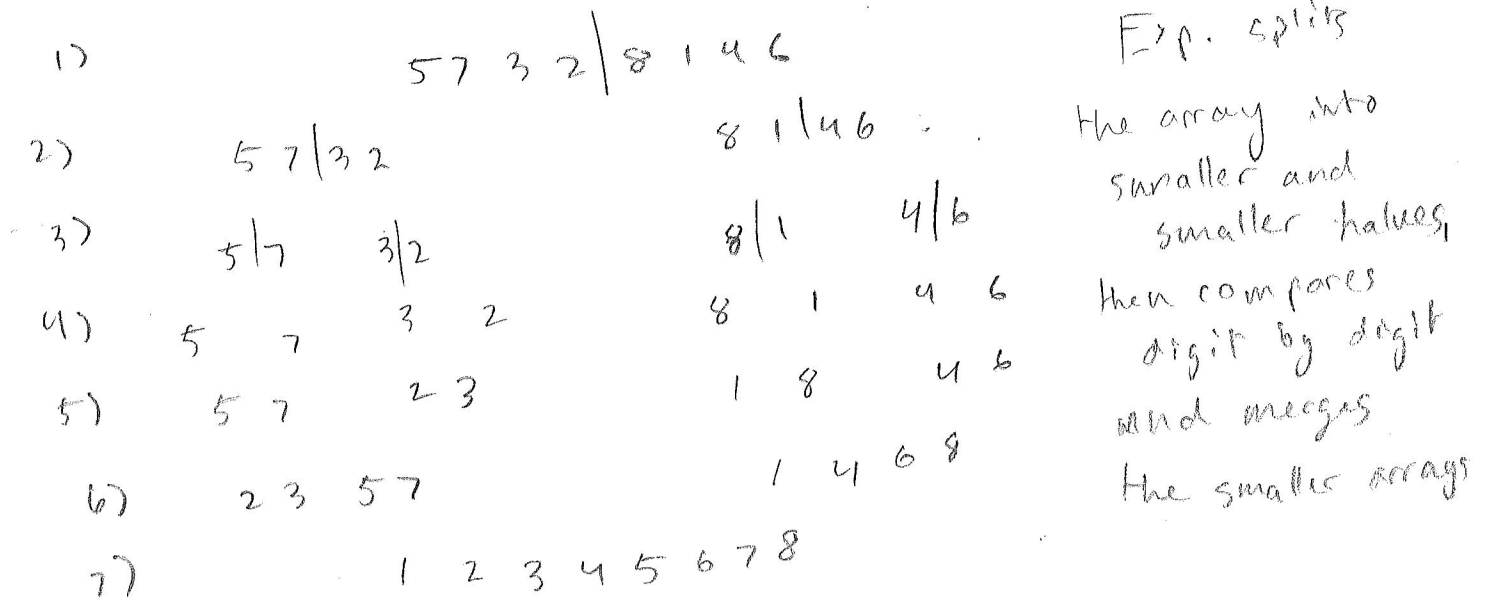 1) 5 7 3 2 | 8 1 4 6
2) 5 7 | 3 2 8 1 | 4 6
3) 5 | 7 3 | 2 8 | 1 4 | 6
4) 5 7 3 2 8 1 4 6
5) 5 7 2 3 1 8 4 6
6) 2 3 5 7 1 4 6 8
7) 1 2 3 4 5 6 7 8
Exp. splits
the array into
smaller and
smaller halves,
then compares
digit by digit
and merges
the smaller arrays